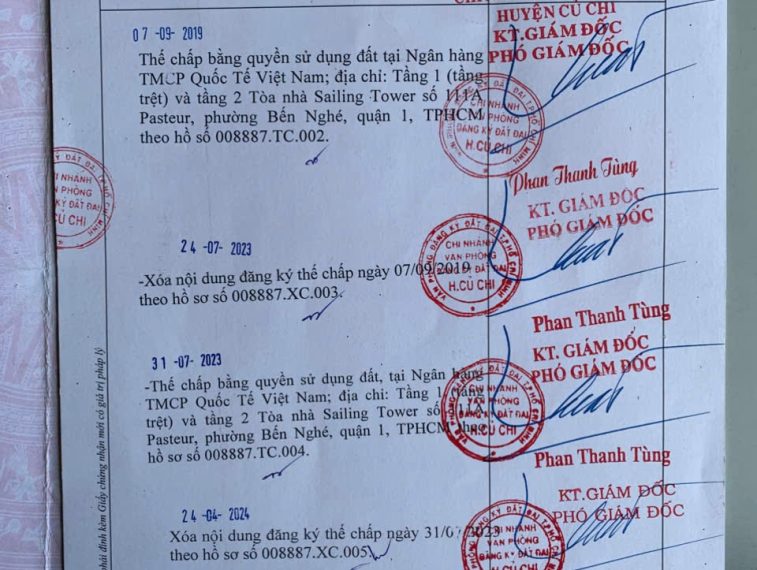 HUYỆN CỦ CHI
07-09-2019
KT.GIÁM ĐỐC
PHÓ GIÁM ĐỐC
Thế chấp bằng quyền sử dụng đất tại Ngân hàng
TMCP Quốc Tế Việt Nam; địa chỉ: Tầng 1 (tầng
trệt) và tầng 2 Tòa nhà Sailing Tower số 111A
Pasteur, phường Bến Nghé, quận 1, TPHCM
theo hồ sơ 008887.TC.002.
CHI NHÁNH
VĂN PHÒNG
ĐĂNG KÝ ĐẤT ĐAI
H.CỦ CHI
Phan Thanh Tùng
KT. GIÁM ĐỐC
PHÓ GIÁM ĐỐC
24-07-2023
-Xóa nội dung đăng ký thế chấp ngày 07/09/2019
theo hồ sơ số 008887.XC.003.
VĂN PHÒNG ĐĂNG KÝ ĐẤT ĐAI T.PHỐ HỒ CHÍ MINH
CHI NHÁNH
VĂN PHÒNG
ĐĂNG KÝ ĐẤT ĐAI
H.CỦ CHI
Phan Thanh Tùng
KT. GIÁM ĐỐC
PHÓ GIÁM ĐỐC
31-07-2023
-Thế chấp bằng quyền sử dụng đất, tại Ngân hàng
TMCP Quốc Tế Việt Nam; địa chỉ: Tầng 1 (tầng
trệt) và tầng 2 Tòa nhà Sailing Tower số 111A
Pasteur, phường Bến Nghé, quận 1, TPHCM theo
hồ sơ số 008887.TC.004.
CHI NHÁNH
VĂN PHÒNG
ĐĂNG KÝ ĐẤT ĐAI
H.CỦ CHI
Phan Thanh Tùng
KT.GIÁM ĐỐC
PHÓ GIÁM ĐỐC
24-04-2024
Xóa nội dung đăng ký thế chấp ngày 31/07/2023
theo hồ sơ số 008887.XC.005.
CHI NHÁNH
VĂN PHÒNG
ĐĂNG KÝ ĐẤT ĐAI
H.CỦ CHI
phải đính kèm Giấy chứng nhận mới có giá trị pháp lý